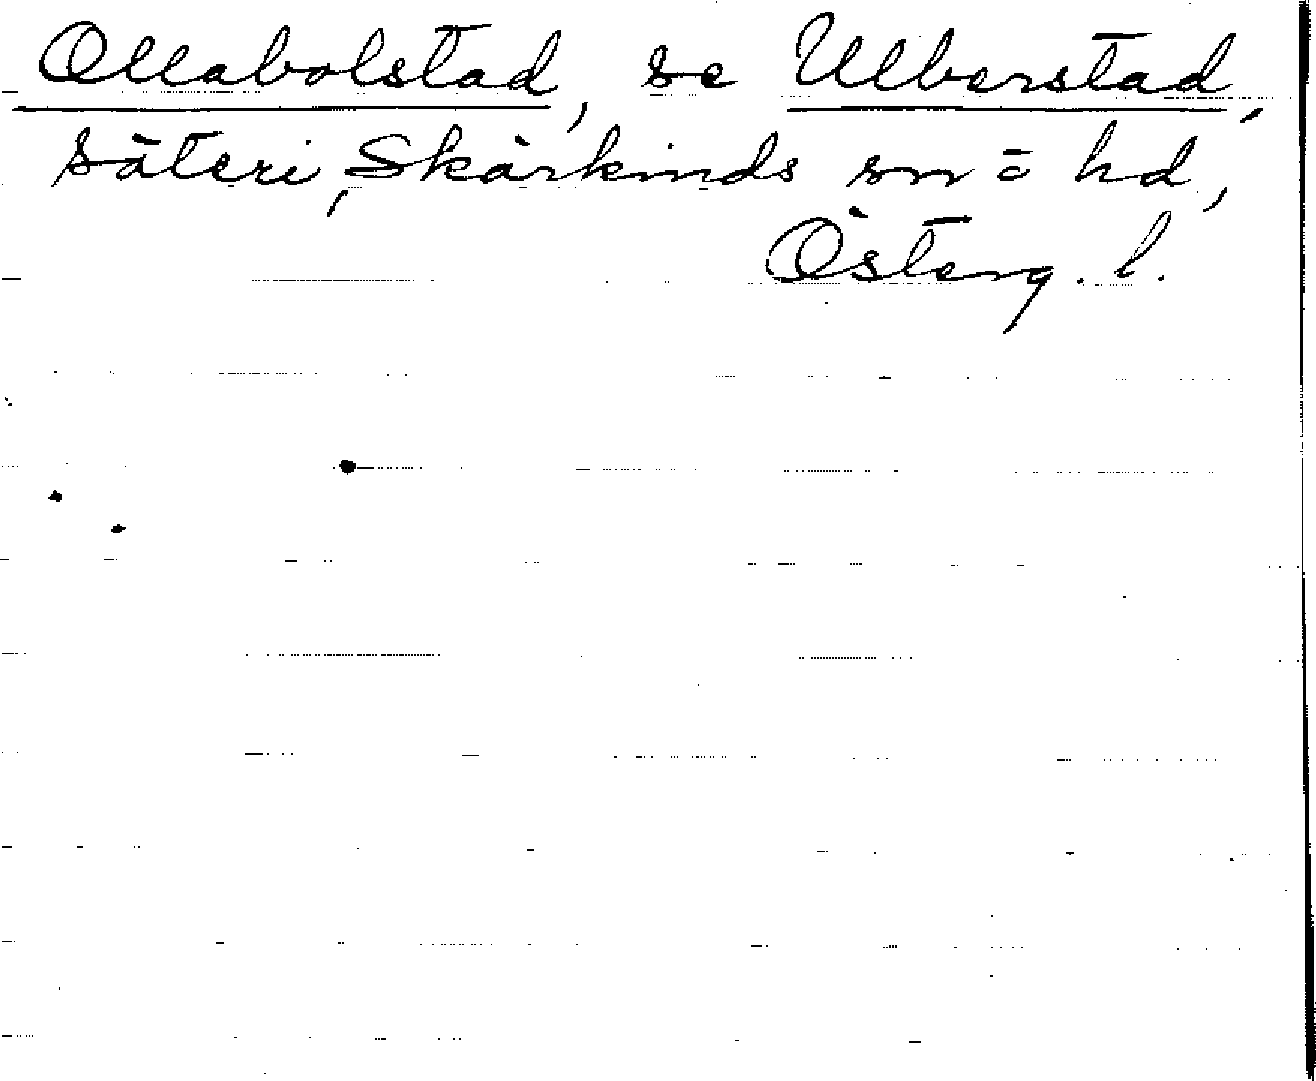 Ollabolstad, se Ulberstad,
säteri, Skärkinds sn = hd,
Österg. l.